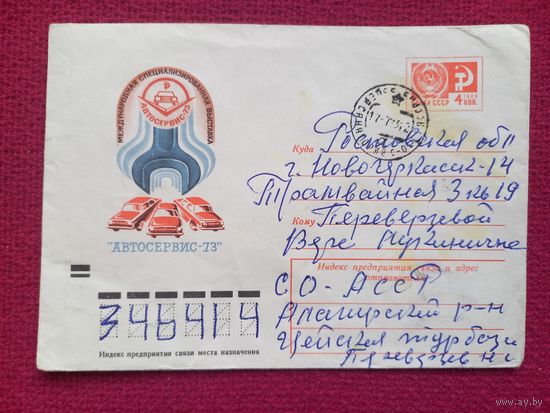 МЕЖДУНАРОДНАЯ СПЕЦИАЛИЗИРОВАННАЯ ВЫСТАВКА
АВТОСЕРВИС-73
"АВТОСЕРВИС-73"
ПОЧТА СССР
4 КОП.
Куда Ростовская обл
г. Новочеркасск-14
Трамвайная 3 кв 19
Кому Переверзевой
Вере
Индекс предприятия связи и адрес отправителя
СО-АССР
Алагирский р-н
Цейская турбаза
346414
Индекс предприятия связи места назначения
www.ay.by